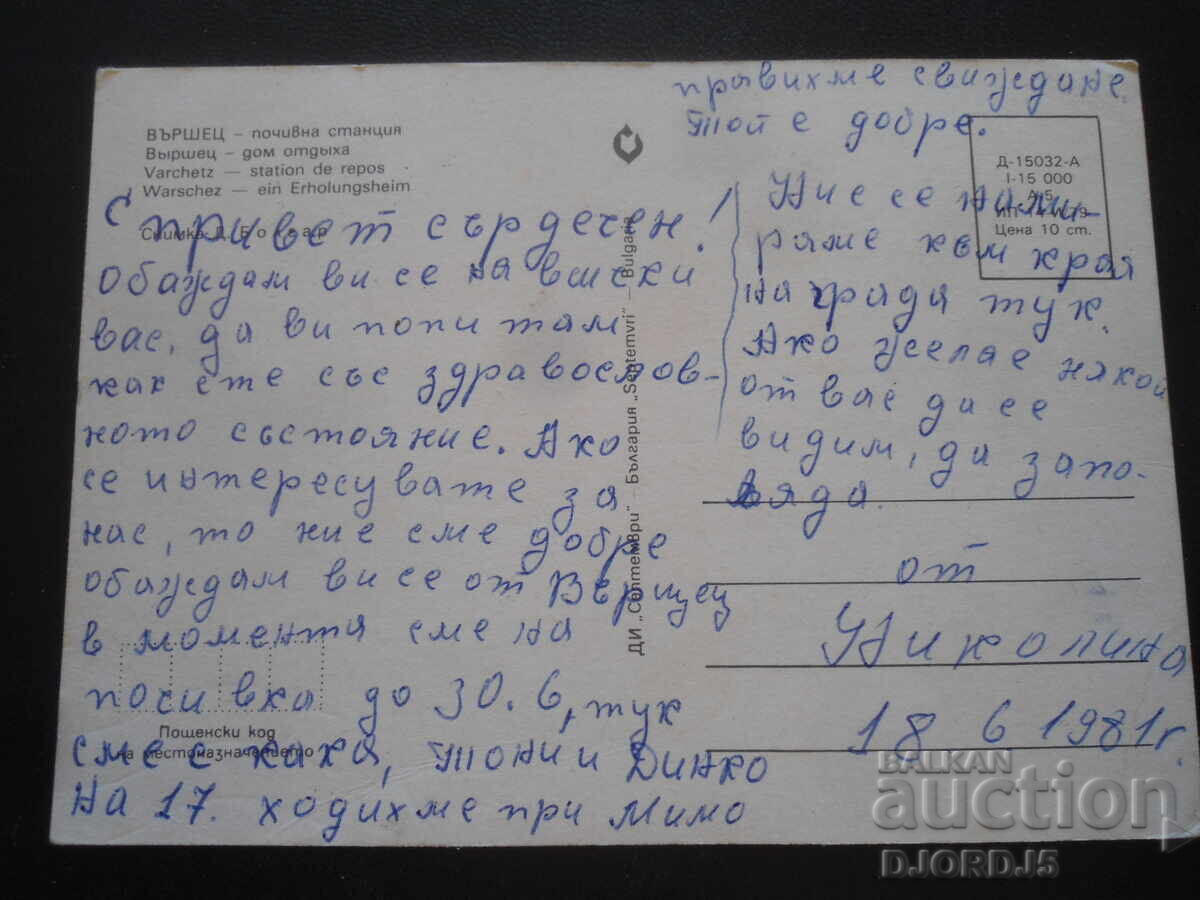 ВЪРШЕЦ – почивна станция
Выршец – дом отдыха
Varchetz — station de repos
Warschez — ein Erholungsheim
Снимка
С привет сърдечен!
обаждам ви се на всички
вас, да ви попитам
как сте със здравослов-
ното състояние. Ако
се интересувате за
нас, то ние сме добре
обаждам ви се от Вършец
в момента сме на
почивка до 30.6, тук
сме с кака, Тони и Динко
на 17. ходихме при Мимо
Пощенски код
на местоназначението
ДИ „Септември" – България „Septemvri" – Bulgaria
правихме свиждане.
Той е добре.
Д-15032-А
I-15 000
А 5
Цена 10 ст.
Ние се нами-
раме към края
на града тук.
Ако желае някой
от вас да се
видим, да запо-
вяда.
от
Николина
18 6 1981г.
BALKAN
auction
DJORDJ5